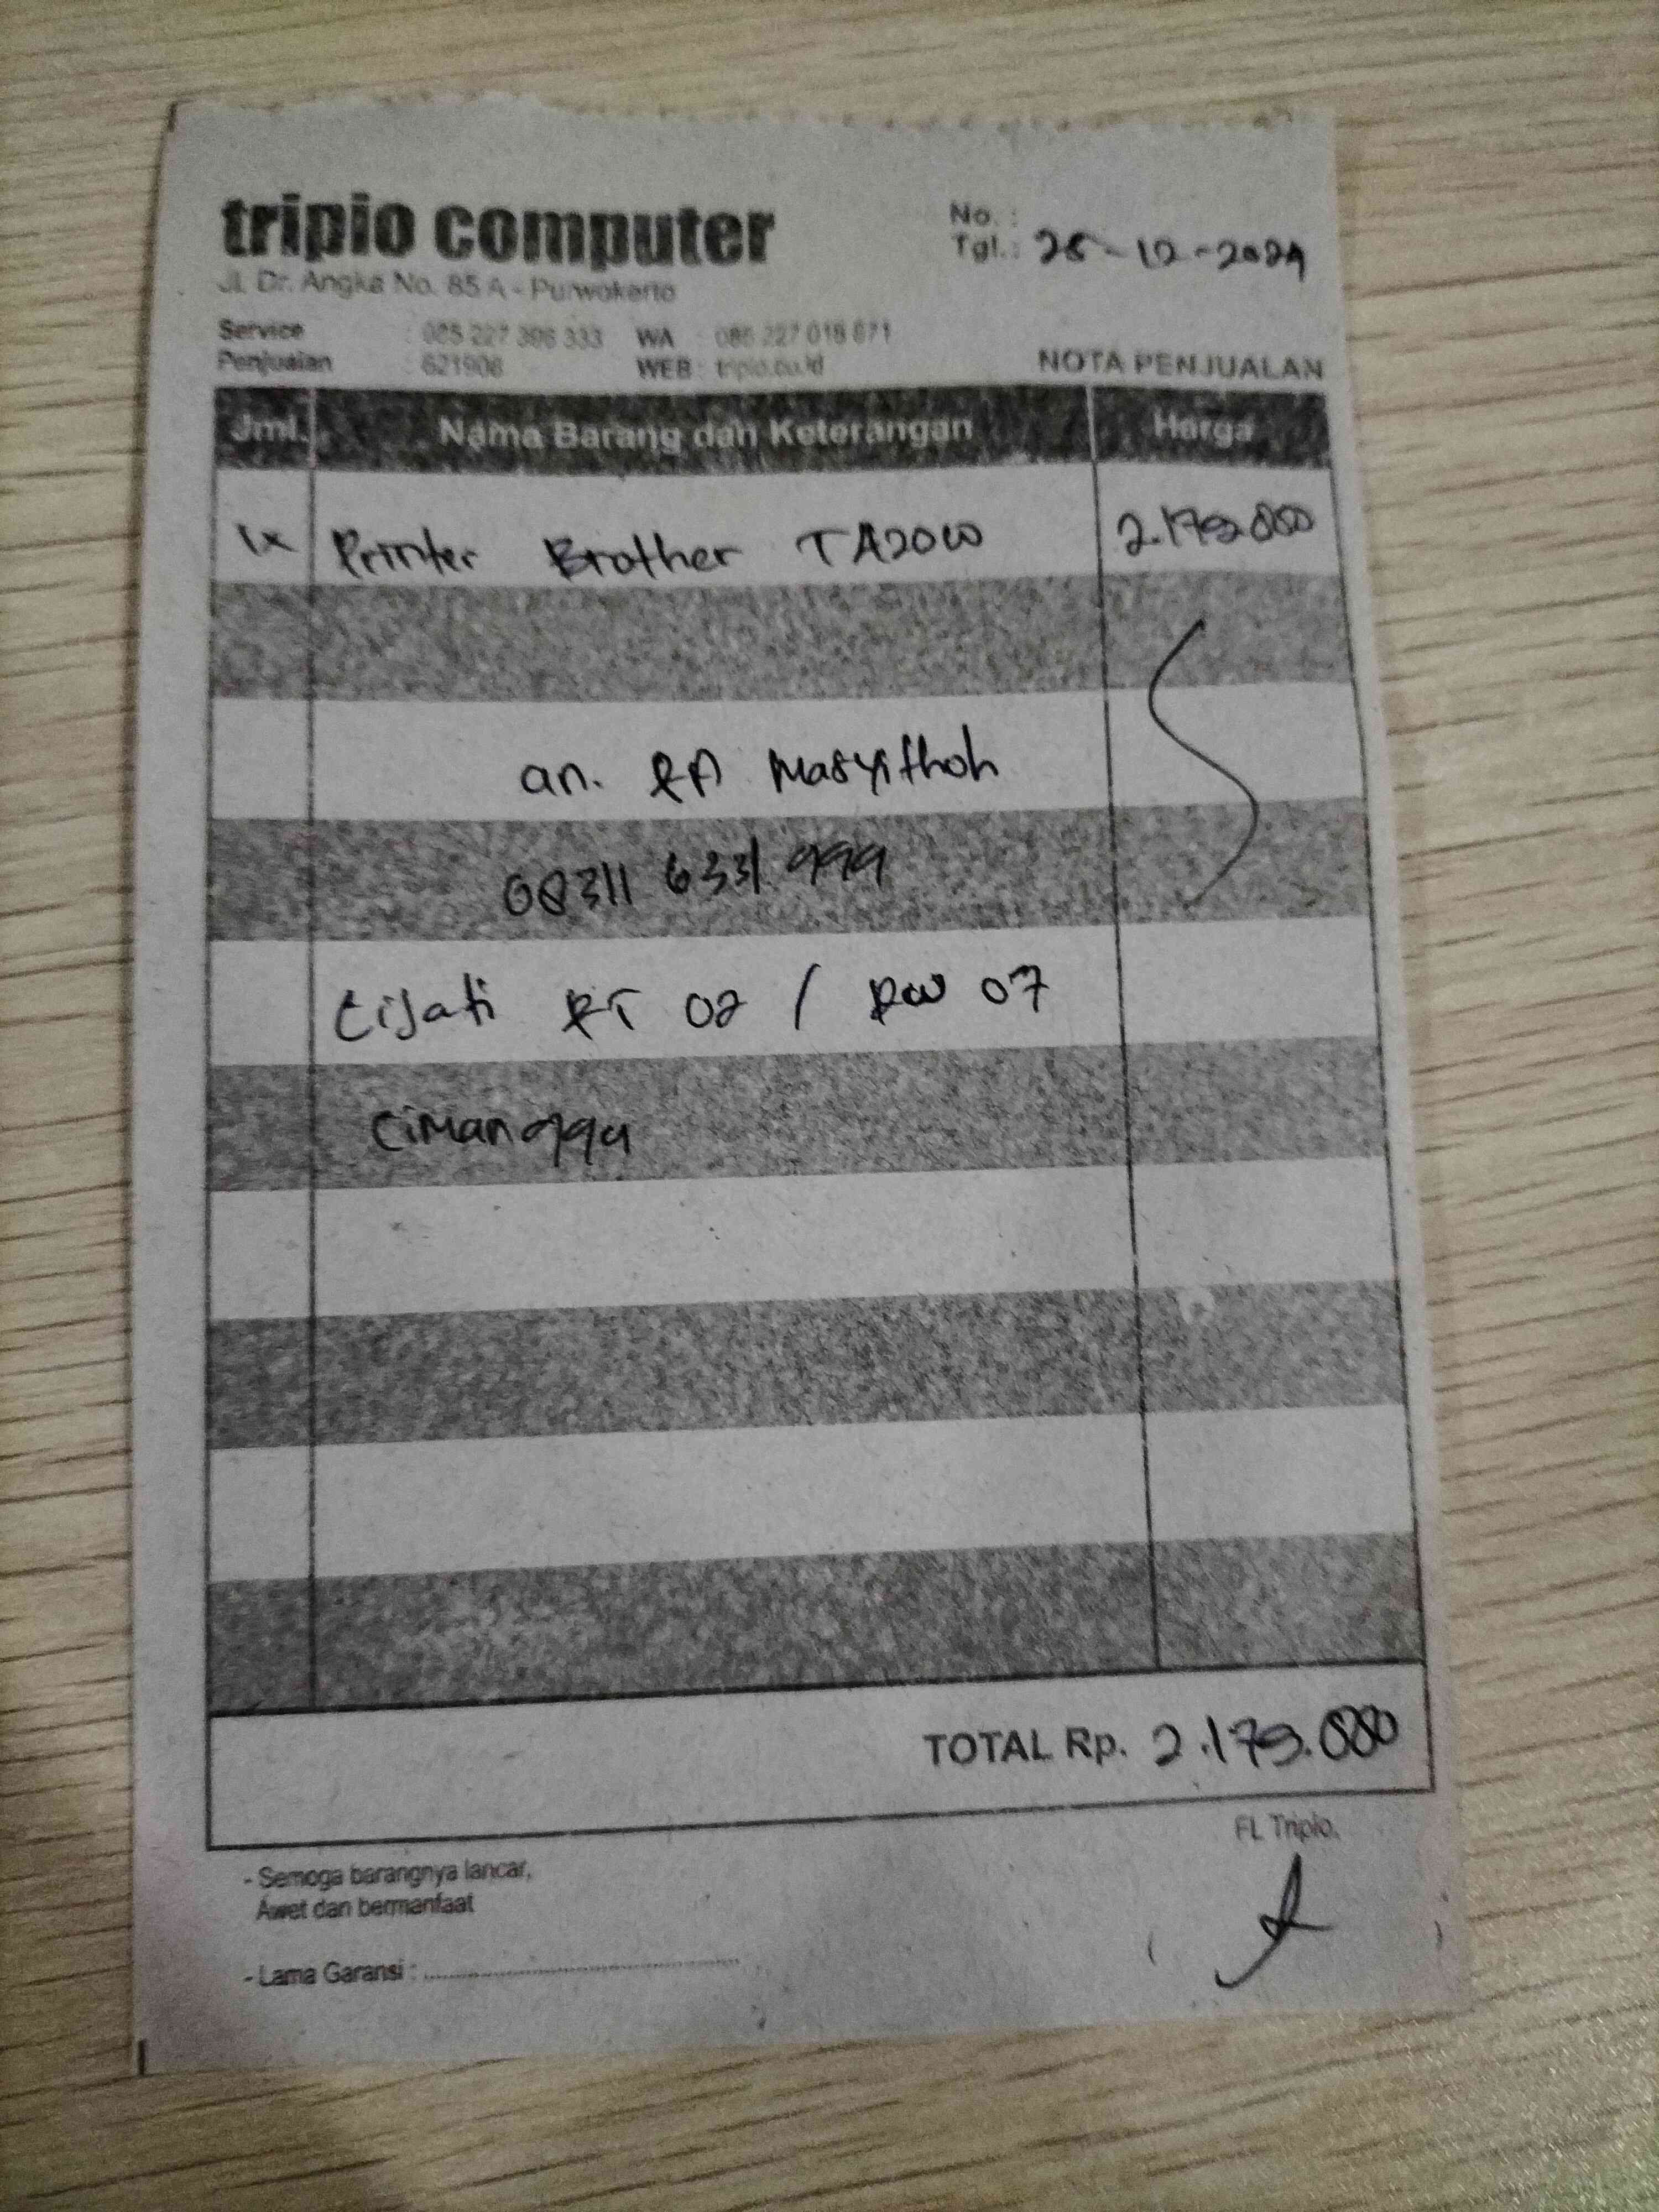 triplo computer
No. :
Jl. Dr. Angka No. 85 A - Purwokerto
Tgl. : 28-12-2024
Service : 085 227 396 333 WA : 085 227 018 671
Penjualan : 621908 WEB : triplo.co.id
NOTA PENJUALAN
Jml. Nama Barang dan Keterangan Harga
1x Printer Brother TA20W 2.179.000
an. RA Masyithoh
08311 6331 999
Cijati RT 02 / RW 07
Cimanggu
TOTAL Rp. 2.179.000
FL Triplo,
- Semoga barangnya lancar,
Awet dan bermanfaat
- Lama Garansi :